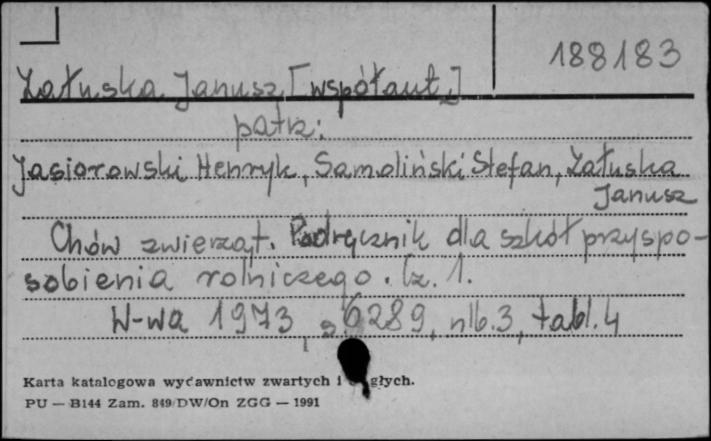 188183
Załuska Janusz [współaut.]
patrz:
Jasiorowski Henryk, Samoliński Stefan, Załuska
Janusz
Chów zwierząt. Podręcznik dla szkół przyspo-
sobienia rolniczego. Cz. 1.
W-wa 1973, s. 289, nlb. 3, tabl. 4
Karta katalogowa wydawnictw zwartych i głych.
PU — B144 Zam. 849/DW/On ZGG — 1991